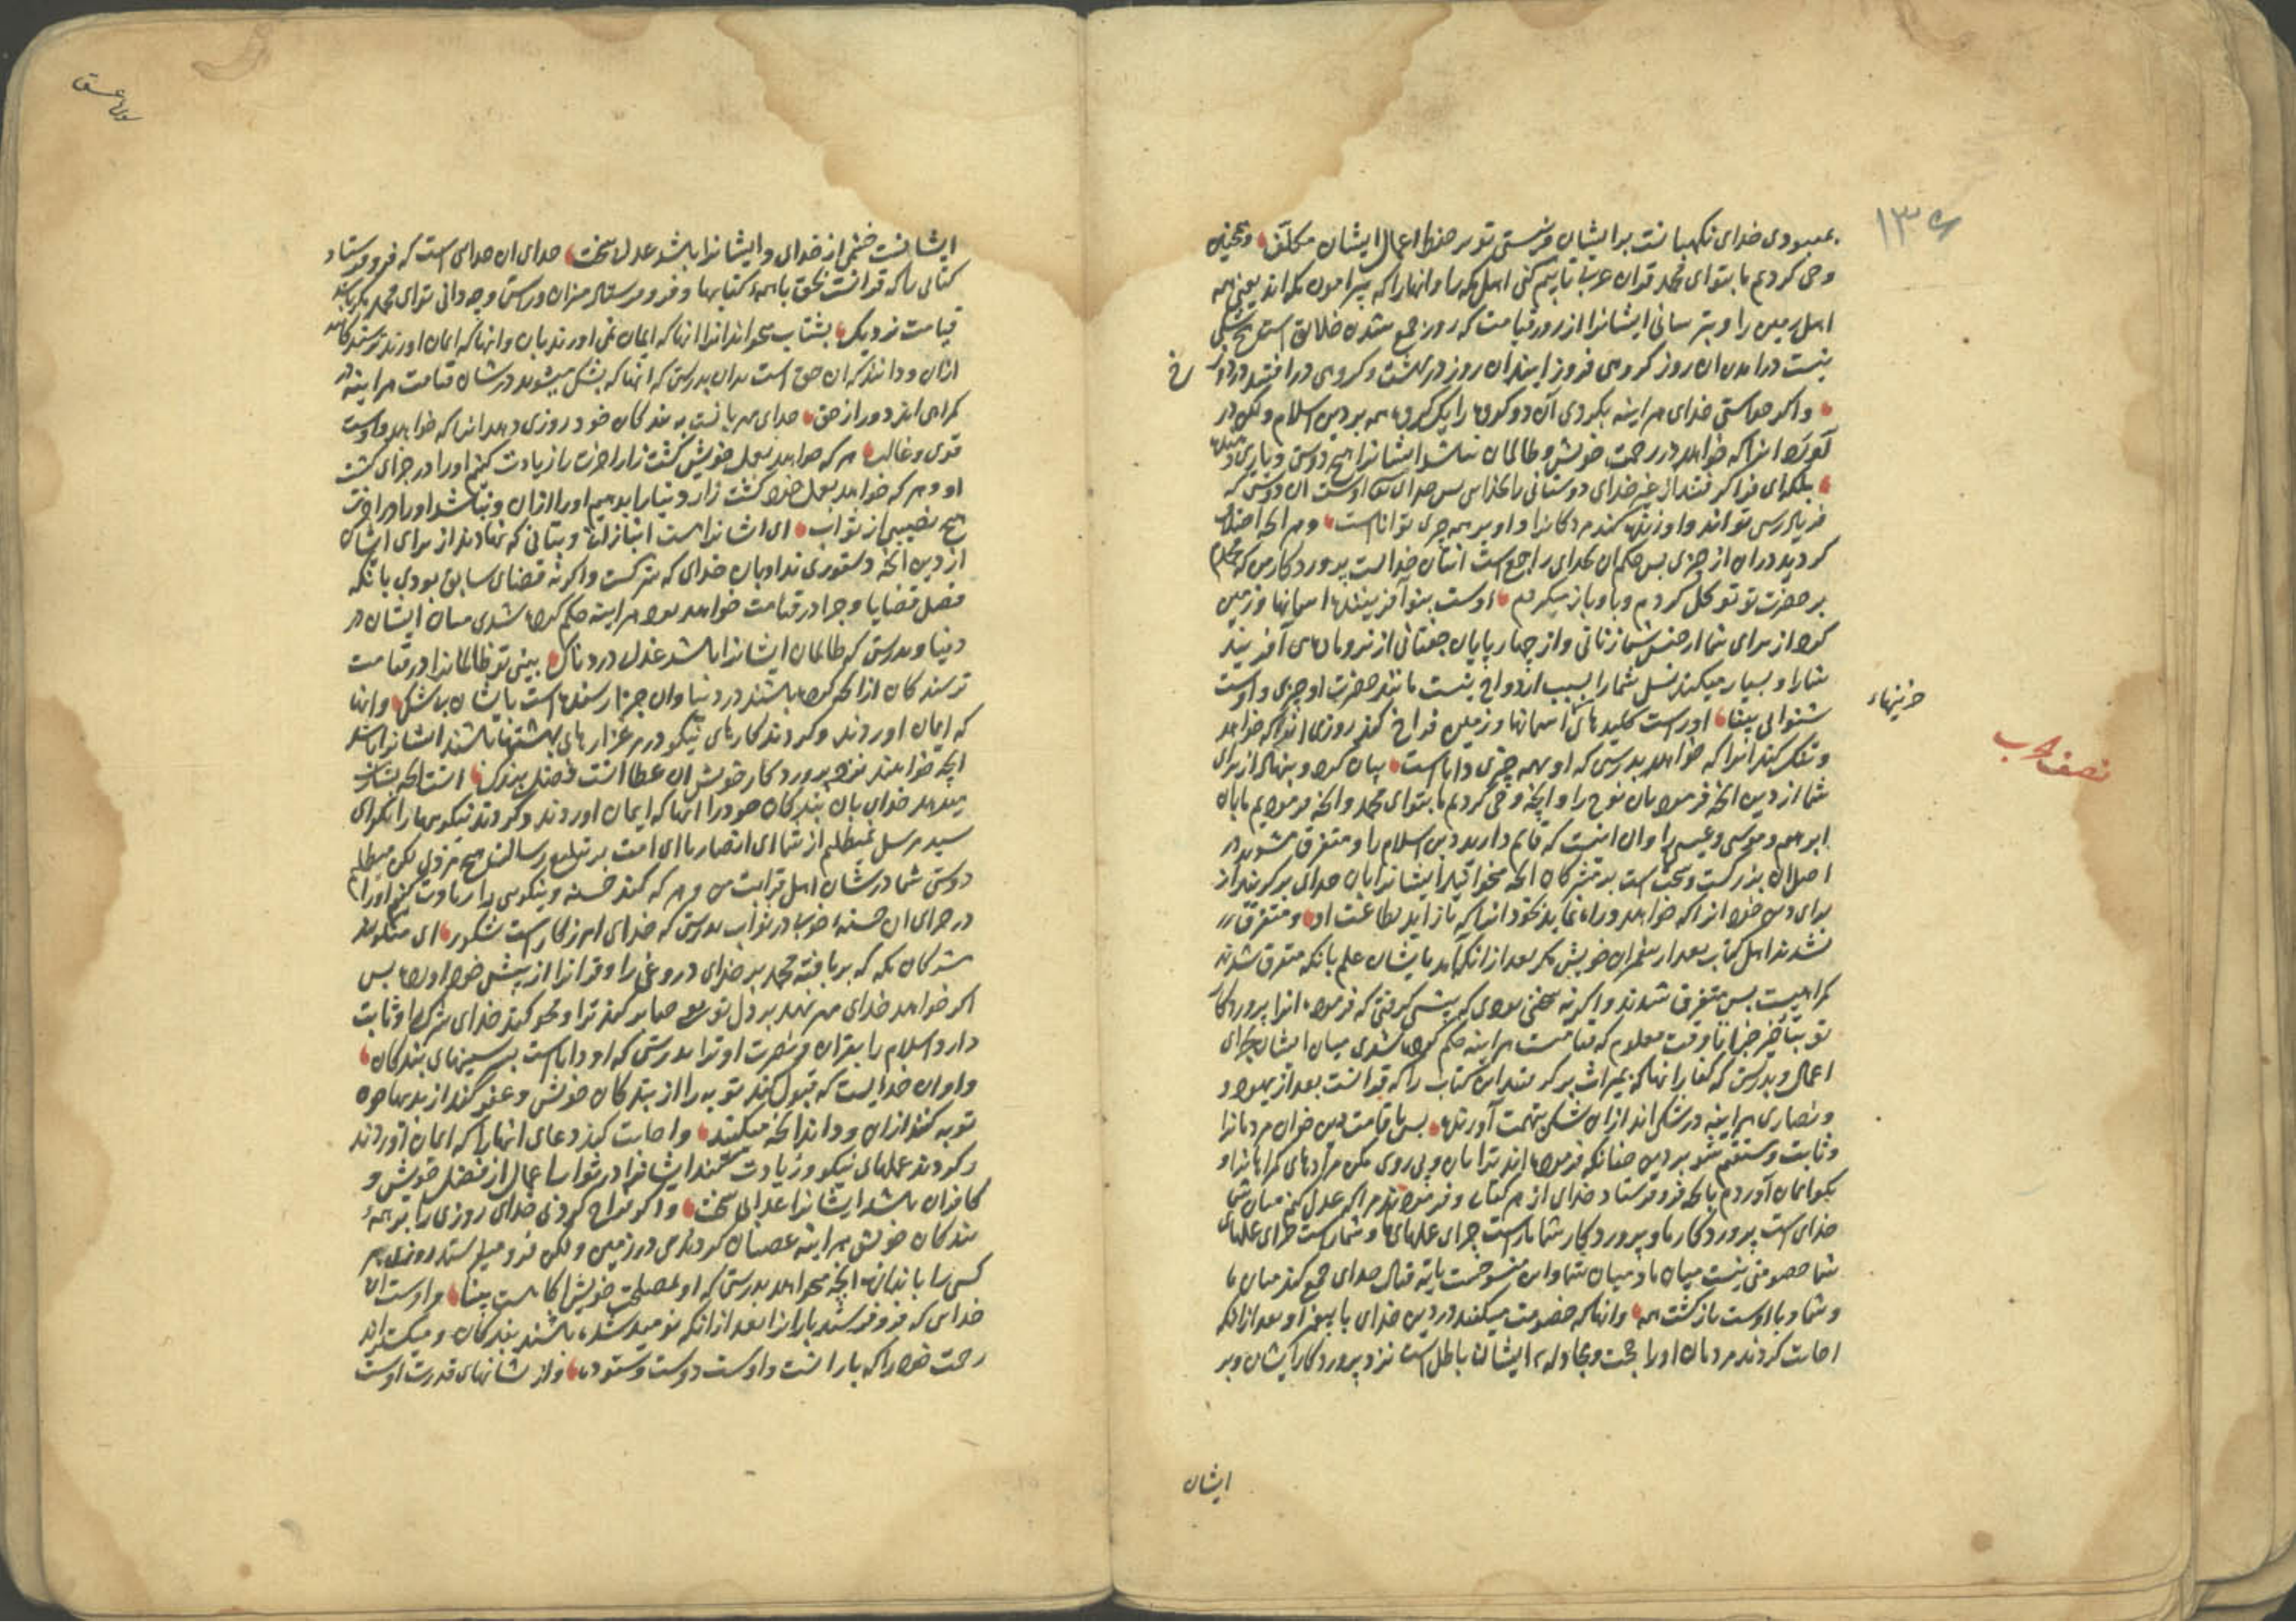 بمعبودی خدای نکهبانست بر ایشان و نیستی تو بر حفظ اعمال ایشان مکلّف و همچنین
وحی کردیم ما بتو ای محمد قران عربی تا بیم کنی اهل مکه را و انها را که پیرامون مکه اند یعنی همه
اهل زمین را و بترسانی ایشانرا از روز قیامت که روز جمع شدن خلایق است هیچ شکی
نیست در امدن ان روز کروهی فرود ایند ان روز در بهشت و کروهی در افتند در دوزخ
و اکر خواستی خدای هر اینه بکردی آن دو کروه را یک کروه همه بر دین اسلام ولکن در
آورد انرا که خواهد در رحمت خویش و ظالمان نباشد ایشانرا هیچ دوستی و یاری دهنده
بلکه ای فرا کرفتند از غیر خدای دوستانی را بخدایی پس خدای تعالی اوست ان دوستی که
فریاد رس تواند و او زنده کند مردکانرا و او بر همه چیزی تواناست و هر انچه اختلاف
کردید در ان از چیزی پس حکم ان بخدای راجع است انسان خدایست پروردکار من که
بر حضرت تو توکل کردم و باو باز میکردم اوست بنو آفریننده اسمانها و زمین
کرد از برای شما از جنس شما زنانی و از چهار پایان جفتانی از نر و ماده می آفریند
شما را و بسیار میکند نسل شما را بسبب ازدواج نیست مانند حضرت او چیزی و اوست
شنوای بینا اوراست کلیدهای اسمانها و زمین فراخ کند روزی انرا که خواهد
خزینهاء
نصف حزب
و تنک کند انرا که خواهد بدرستی که او بهمه چیزی داناست بیان کرد و بنهاد از برای
شما از دین انچه فرمود بان نوح را و انچه وحی کردیم ما بتو ای محمد و انچه فرمودیم ما بان
ابرهیم و موسی و عیسی را و ان اینست که قایم دارید دین اسلام را و متفرق مشوید در
اصل ان بزرکست و سخت است بر مشرکان انچه میخوانید ایشانرا بان خدای بر کزیند از
برای دین خود انرا که خواهد و راه نماید بخود انرا که باز اید بطاعت او و متفرق
نشدند اهل کتاب بعد از پیغمبران خویش مکر بعد از انکه آمد بایشان علم بانکه متفرق شدن
کمراهیست پس متفرق شدند و اکر نه سخنی بودی که پیشی کرفتی که فرمود انرا پروردکار
تو بتاخیر جزا تا وقت معلوم که قیامتست هر اینه حکم کرده شدی میان ایشان بجزای
اعمال و بدرستی که کفار انها که بمیراث بر کرفتند این کتاب را که قرانست بعد از یهود و
و نصاری هر اینه در شکی اند از ان شکی تهمت آورنده پس تا قیامت دین خوان مردمانرا
و ثابت و مستقیم شو بر دین چنانکه فرموده اند ترا بان و پی روی مکن مرادهای کمراهانرا و
بکو ایمان آوردم بانچه فرو فرستاد خدای از هر کتاب و فرموده اند مرا که عدل کنم میان شما
خدای است پروردکار ما و پروردکار شما ماراست جزای عملهای ما و شماراست جزای عملهای
شما خصومتی نیست میان ما و میان شما و این منسوخست بایه قتال خدای جمع کند میان ما
و شما و با اوست باز کشت همه و انها که خصومت میکنند در دین خدای با پیغمبر او بعد از انکه
اجابت کردند مردمان او را حجت و مجادله ایشان باطل است نزد پروردکار ایشان و بر
ایشان
ایشانست خشمی از خدای و ایشانرا باشد عذاب سخت خدای ان خدای است که فرو فرستاد
کتابی را که قرانست بحق با همه کتابها و فرو فرستاد میزان و راستی و چه دانی تو ای محمد مکر باشد
قیامت نزدیک بشتاب میخوانند انرا انها که ایمان نمی اورند بان و انها که ایمان اورند ترسندکانند
ازان و دانند که ان حق است بدان بدرستی که انها که بشک میشوند در شان قیامت هر اینه در
کمراهی اند دور از حق خدای مهربانست به بندکان خود روزی دهد انرا که خواهد و اوست
قوی و غالب هر که خواهد بعمل خویش کشت زار اخرت را زیادت کنیم او را در جزای کشت
او و هر که خواهد بعمل خود کشت زار دنیا را بدهیم او را ازان و نباشد او را در اخرت
هیچ نصیبی از ثواب ای ایشانراست انبازان و بتانی که نهادند از برای ایشان
از دین انچه دستوری نداد بان خدای که شرکست و اکر نه قضای سابق بودی بانکه
فصل قضایا و جزا در قیامت خواهد بود هر اینه حکم کرده شدی میان ایشان در
دنیا و بدرستی که ظالمان ایشانرا باشد عذاب دردناک بینی تو ظالمانرا در قیامت
ترسندکان ازانچه کرده باشند در دنیا و ان جزا رسنده است بایشان بی شک و انها
که ایمان اوردند و کردند کارهای نیکو در مرغزارهای بهشتها باشند ایشانرا باشد
انچه خواهند نزد پروردکار خویش ان عطا انست فضل بزرک انست انچه بشارت
میدهد خدای بان بندکان خود را انها که ایمان اوردند و کردند نیکوییها را بکو ای
سید مرسل نمیطلبم از شما ای انصار یا ای امت بر تبلیغ رسالت هیچ مزدی لکن میطلبم
دوستی شما در شان اهل قرابت من و هر که کند حسنه و نیکویی را زیادت کنم او را
در جزای ان حسنه خوب در ثواب بدرستی که خدای امرزکار است شکور ای میکویند
مشرکان مکه که بر بافته محمد بر خدای دروغی را و قرانرا از پیش خود اورده پس
اکر خواهد خدای مهر نهد بر دل تو یعنی صابر کند ترا و محو کند خدای شرک را و ثابت
دارد اسلام را بقران و نصرت او ترا بدرستی که او داناست بر سینهای بندکان
و او ان خدایست که قبول کند توبه را از بندکان خویش و عفو کند از بدیها چون
توبه کنند ازان و داند انچه میکنند و اجابت کند دعای انها را که ایمان آوردند
و کردند عملهای نیکو و زیادت کند ایشانرا در ثواب اعمال از فضل خویش و
کافران باشد ایشانرا عذاب سخت و اکر فراخ کردی خدای روزی را بر همه
بندکان خویش هر اینه عصیان کردندی در زمین ولکن فرو میفرستد روزی هر
کسی را باندازه انچه میخواهد بدرستی که او بمصلحت خویش اکاهست بینا و اوست ان
خدایی که فرو فرستد بارانرا بعد از انکه نومید شده باشند بندکان و میکستراند
رحمت خود را که بارانست و اوست دوست و ستوده و از نشانهای قدرت اوست